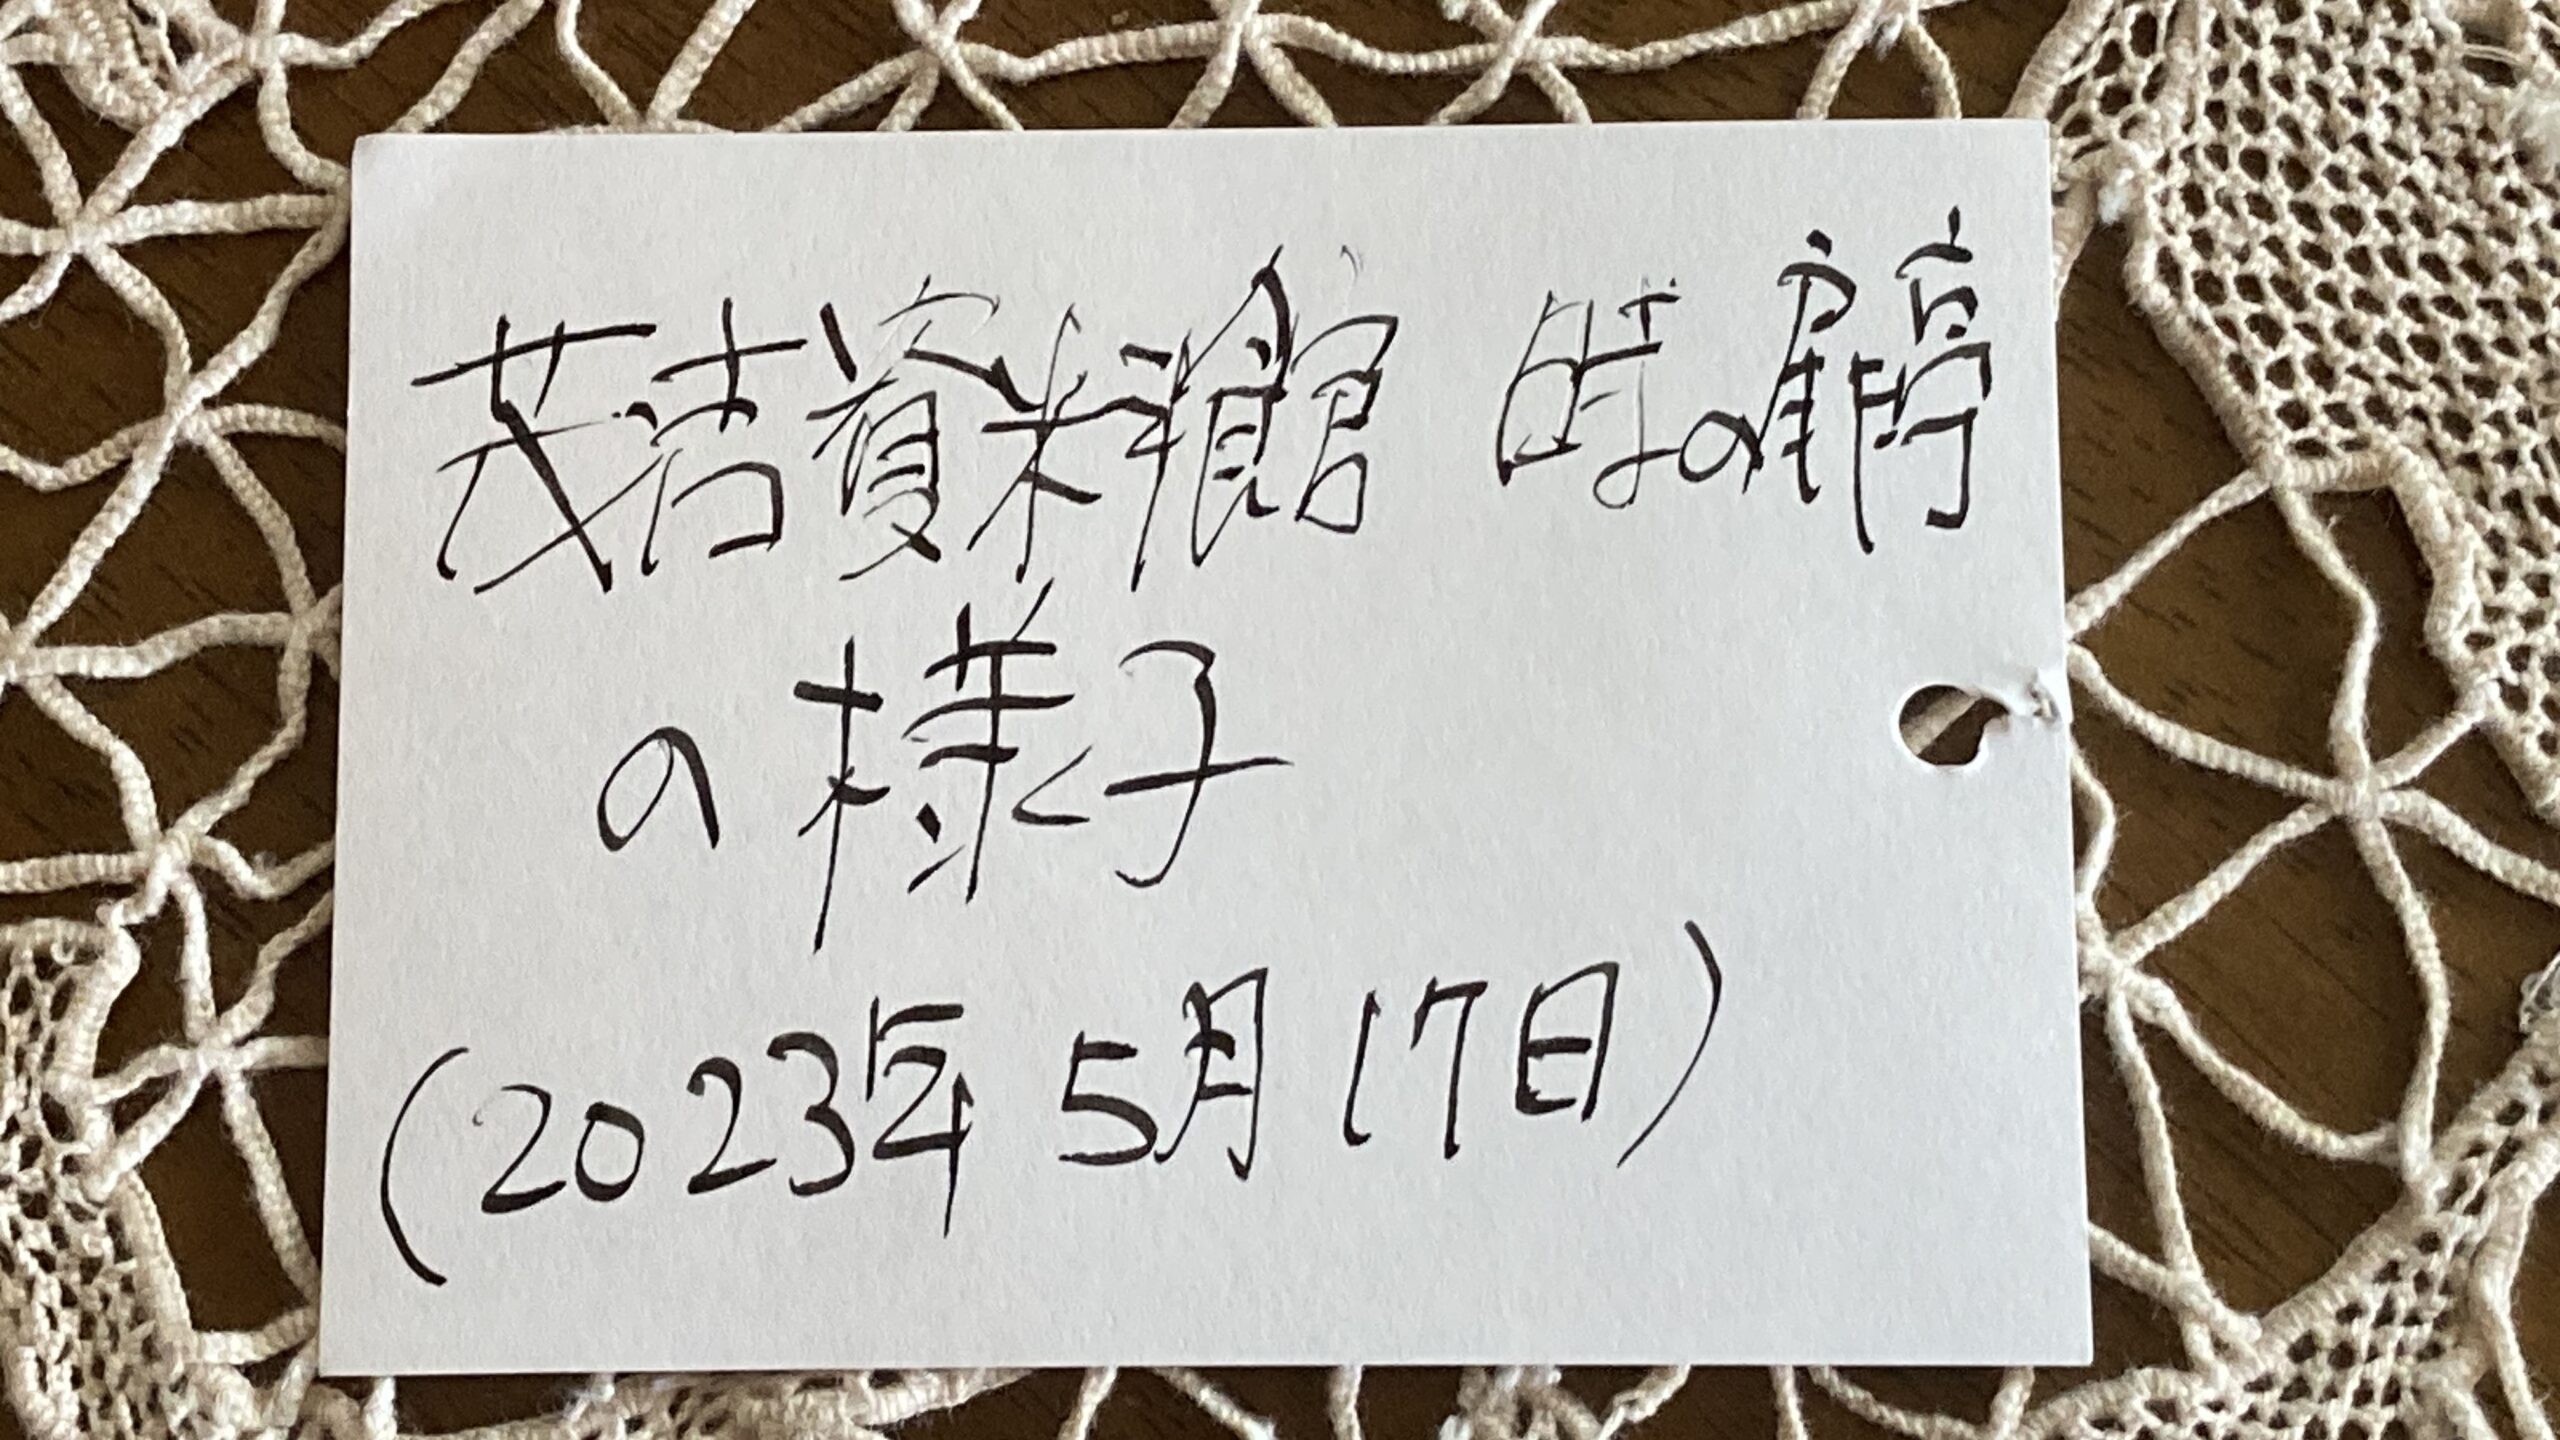 茂吉資料館 時の
の様子
(2023年5月17日)